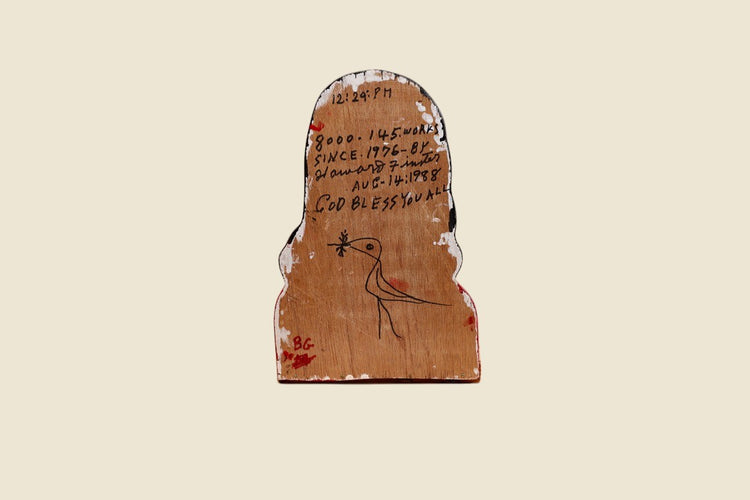 12:29:PM
8000.145.WORKS
SINCE.1976-BY.
Howard Finster
AUG-14:1988
GOD BLESS YOU ALL
BG